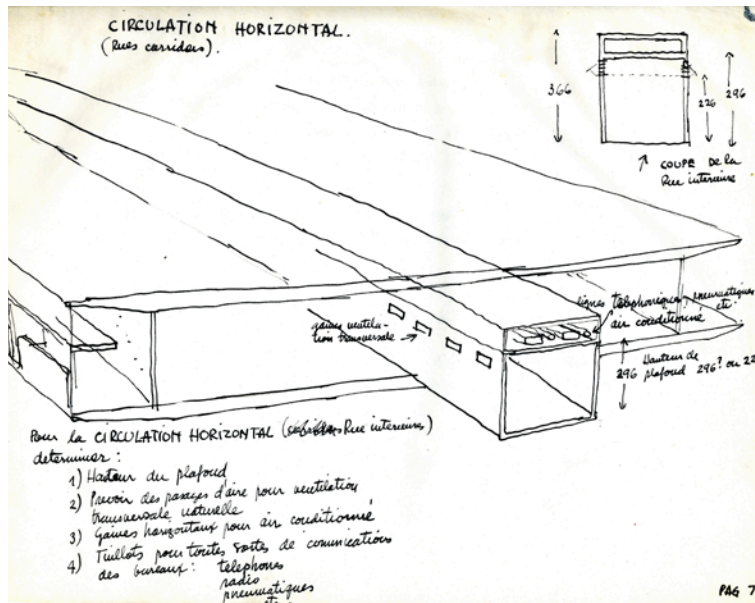 CIRCULATION HORIZONTAL.
(Rues corridors).
366
226
296
↑ COUPE DE LA
Rue interieure
lignes telephoniques, pneumatiques
air conditionné etc
gaines ventila-
tion transversale
296
Hauteur de
plafoud 296? ou 22
Pour la CIRCULATION HORIZONTAL ( Rue interieures)
determiner :
1) Hauteur du plafoud
2) Prevoir des passages d'aire pour ventilation
transversale naturelle
3) Gaines horizontaux pour air conditionné
4) pour toutes sortes de comunications
des bureaux : telephones
radio
pneumatiques
etc
PAG 7